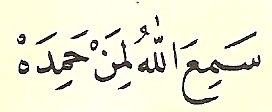 سَمِعَ اللّٰهُ لِمَنْ حَمِدَهْ